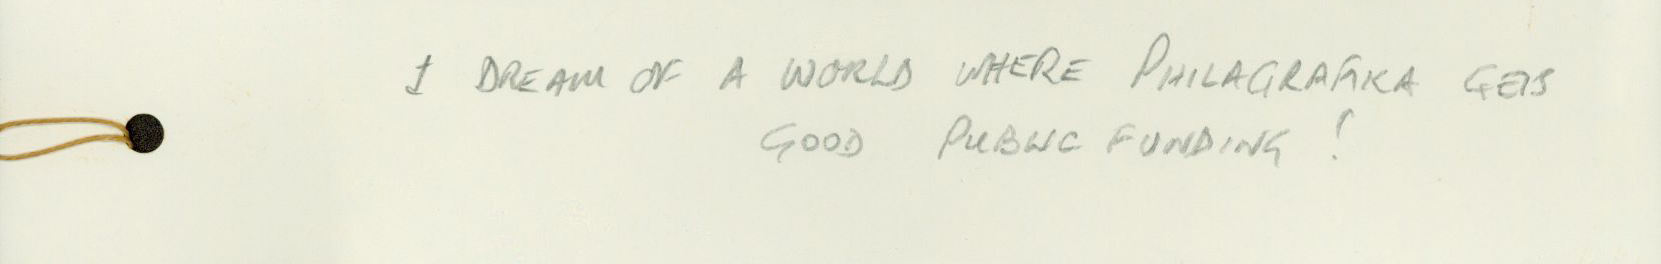 I DREAM OF A WORLD WHERE PHILAGRAFIKA GETS
GOOD PUBLIC FUNDING!